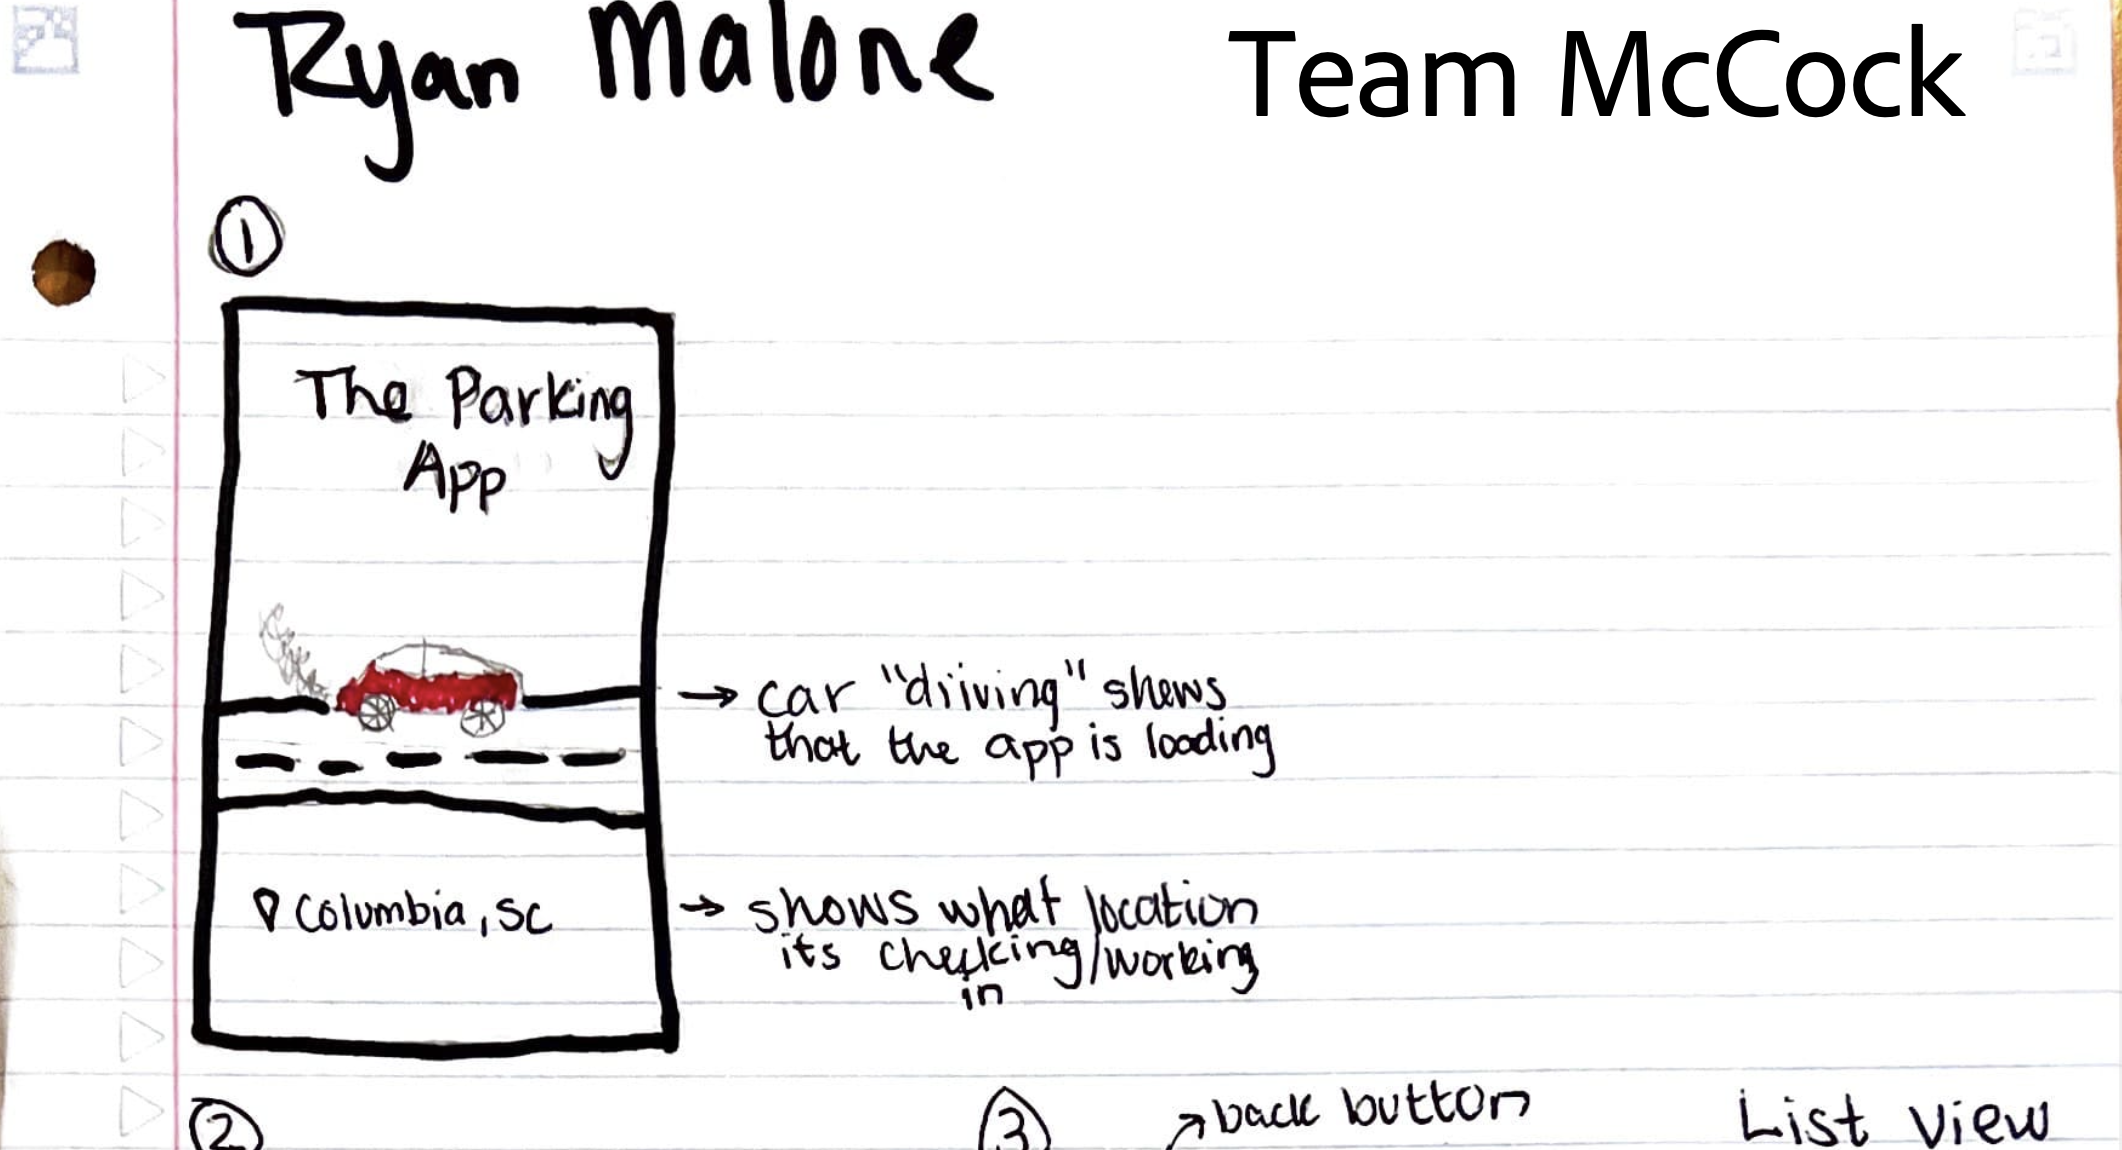 Ryan Malone
Team McCock
1
The Parking
App
car "driving" shows
that the app is loading
Columbia, SC
shows what location
its checking/working
in
2
3
back button
List View